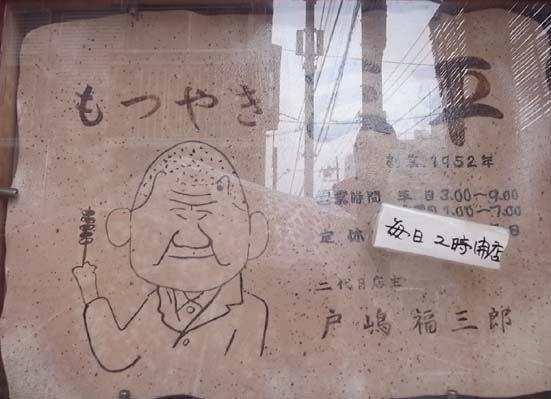 もつやき 三平
創業1952年
営業時間 平日3:00〜9:00
1:00〜7:00
定休 日
毎日2時開店
二代目店主
戸嶋福三郎